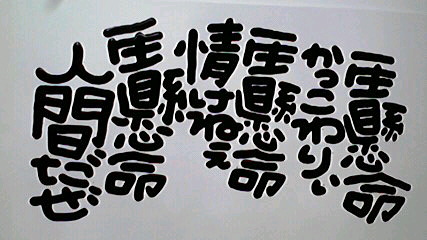 一生懸命
かっこわりぃ
一生懸命
情けねぇ
一生懸命
人間だぜ